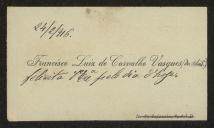 24/2/46.
Francisco Luiz de Carvalho Vasques,
felicita V. Exª pelo dia d'hoje.